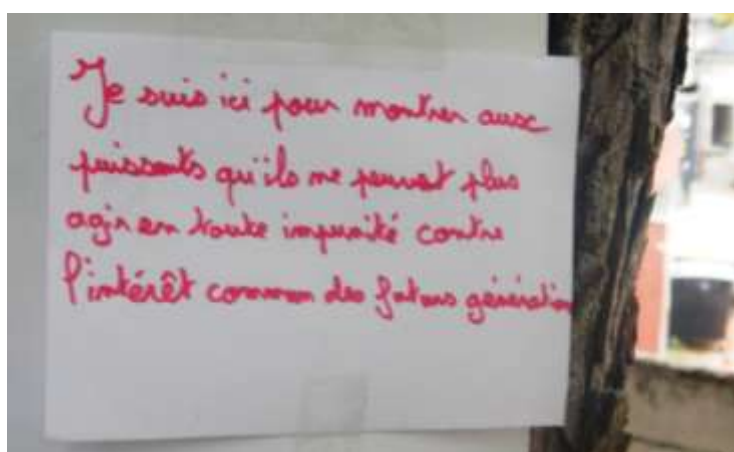 Je suis ici pour montrer aux
puissants qu'ils ne peuvent plus
agir en toute impunité contre
l'intérêt commun des futurs génération